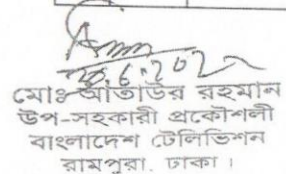 মোঃ আতাউর রহমান
উপ-সহকারী প্রকৌশলী
বাংলাদেশ টেলিভিশন
রামপুরা, ঢাকা।